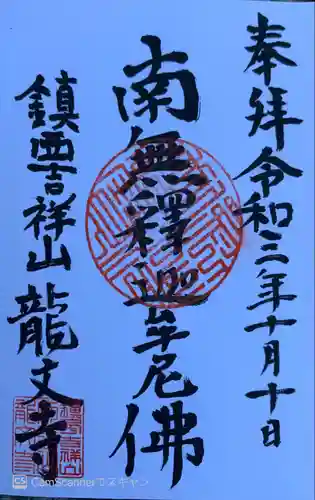 奉拜令和三年十月十日
南無釋迦牟尼佛
鎮西吉祥山龍文寺
CS CamScannerでスキャン